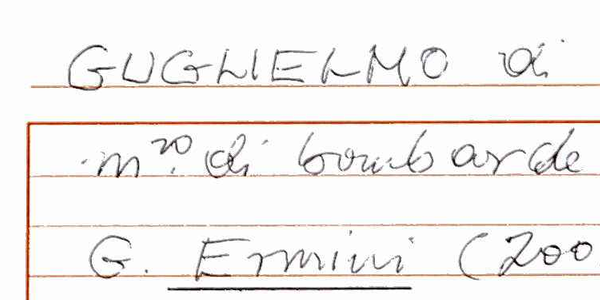 GUGLIELMO di
m.ro di bombarde
G. Ermini (200